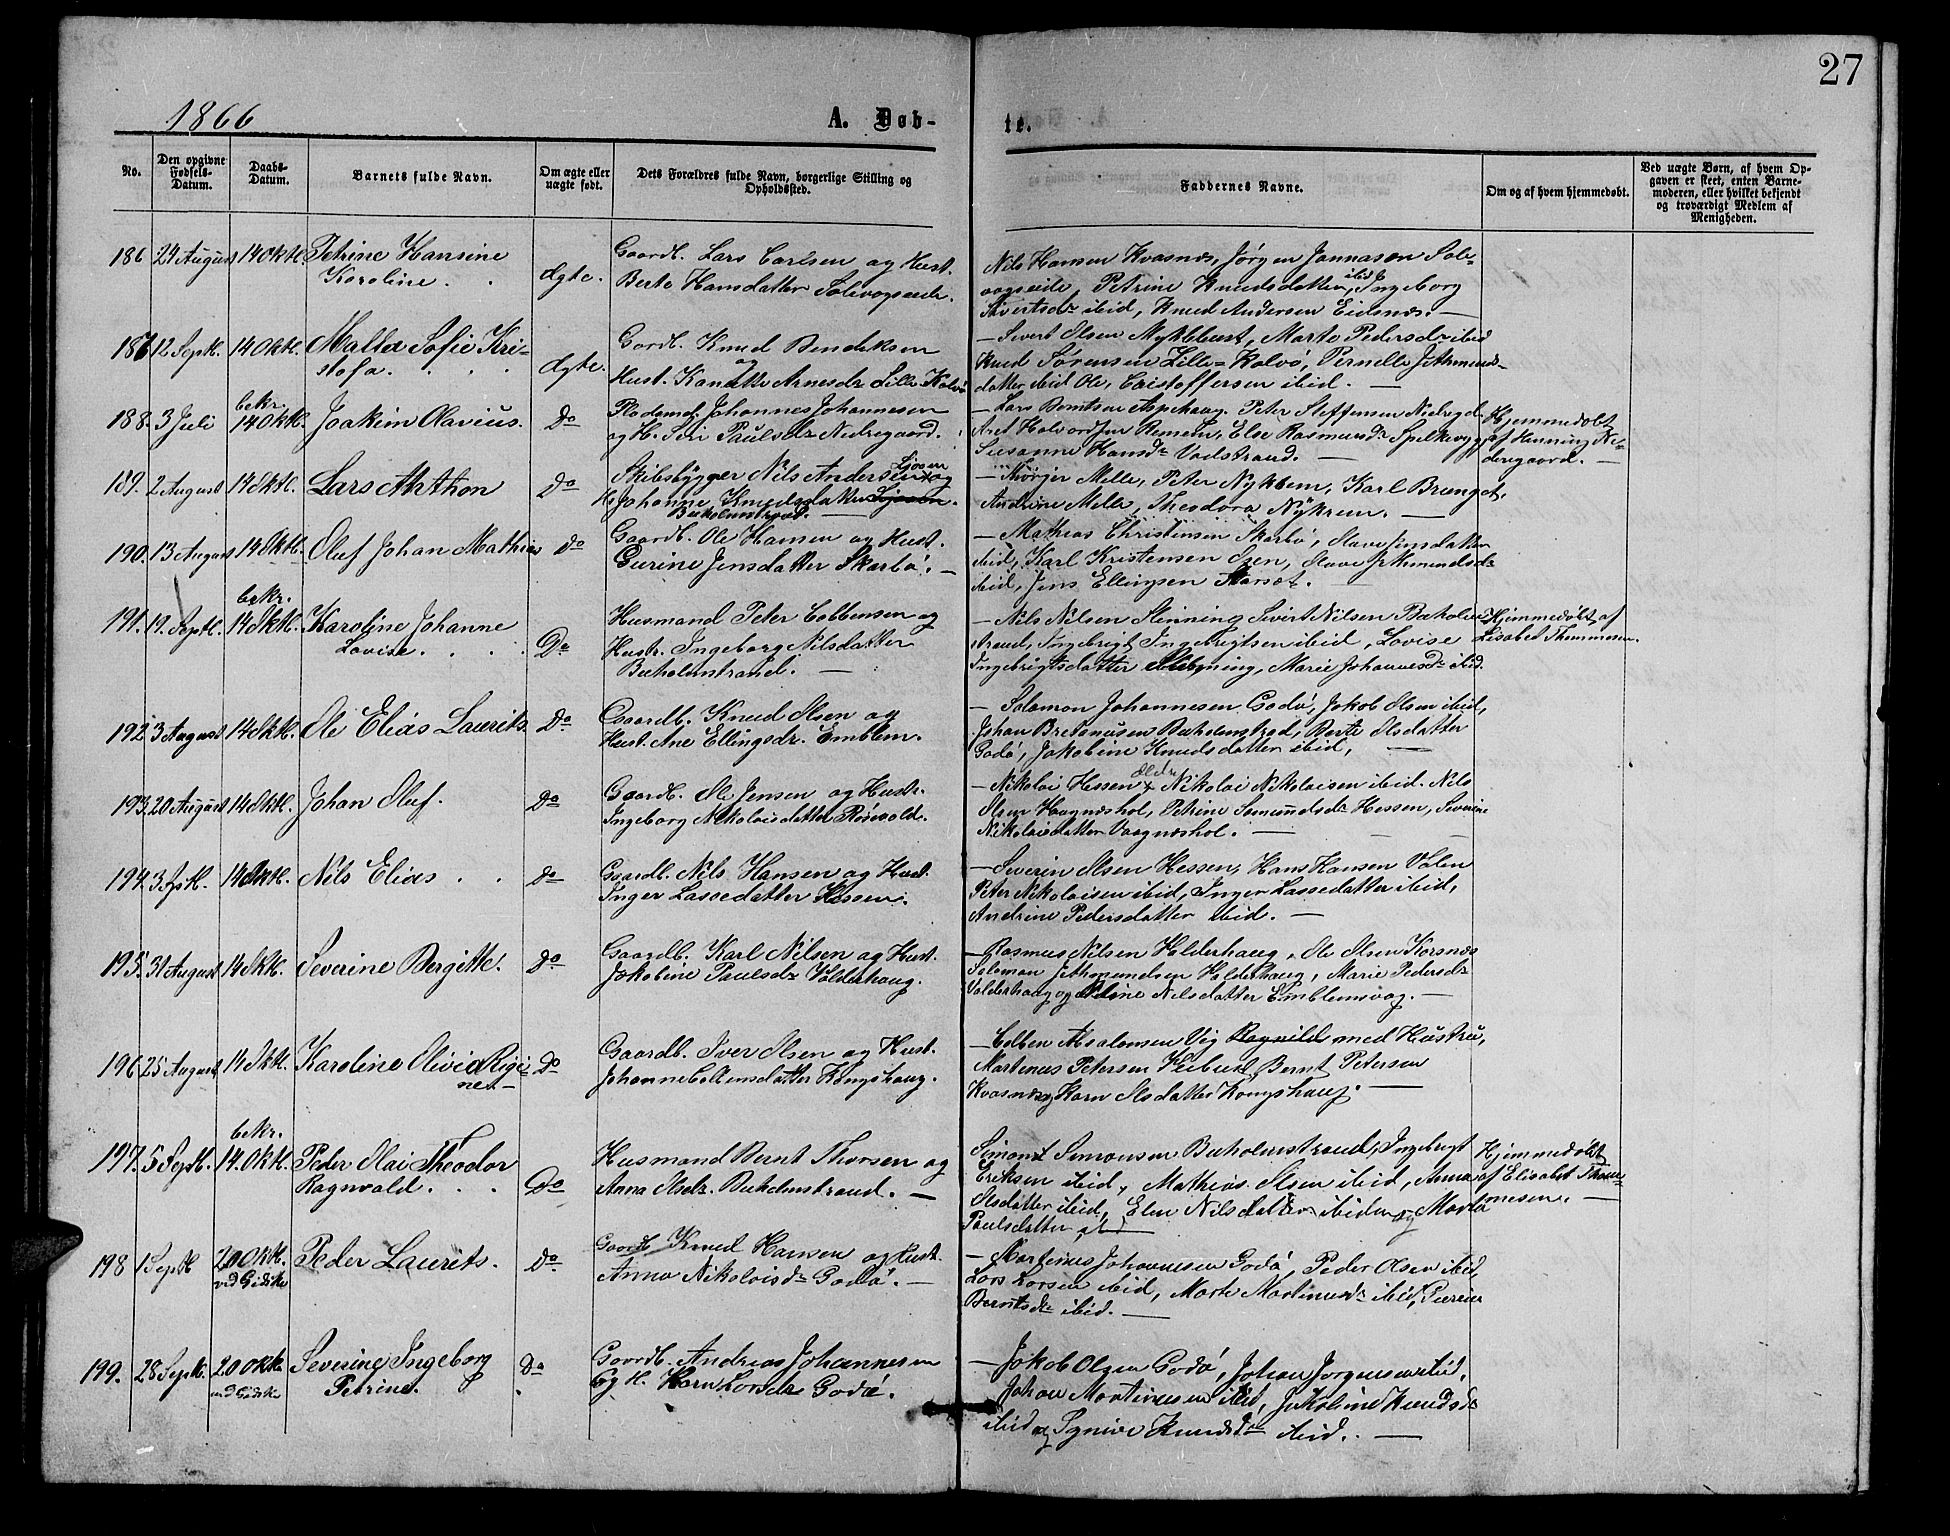 27
1866
A. Døb-
te.
No.
Den opgivne Fødsels-Datum.
Daabs-Datum.
Barnets fulde Navn.
Om ægte eller uægte født.
Dets Forældres fulde Navn, borgerlige Stilling og Opholdssted.
Faddernes Navne.
Om og af hvem hjemmedøbt.
Ved uægte Børn, af hvem Opgaven er skeet, enten Barnemoderen, eller hvilket bekjendt og troværdigt Medlem af Menigheden.
186 24 August 14 Oktl. Petrine Hansine
Karoline. ægte.
Gaardb. Lars Carlsen og Hust.
Berte Hansdatter Solevogseide.
Nils Hansen Kvasnæs, Jørgen Jonnasen Sole-
vogseide, Petrine Knudsdatter ibid, Ingeborg
Sivertsdr ibid, Knud Andersen Eidsnæs. —
187 12 Septl. 14 Oktl. Malta Sofie Kri-
stofa. ægte.
Gardb. Knud Bendiksen
og
Hust. Kanutte Arnesdr Lille-Kalvø
— Sivert Olsen Myklebust, Marte Pedersdr ibid
Knud Sørensen Lille-Kalvø, Pernelle Jethmunds-
datter ibid Ole Cristoffersen ibid. —
188. 3 Juli bekr. 14 Oktl. Joakim Olavius. Do
Pladsmd. Johannes Johannesen
og H. Siri Paulsdr Nedregaard.
— Lars Berntsen Aspehaug. Peter Steffensen Nedregd.
Anet Halvordsen Remen, Else Rasmusdr Spelkevig,
Susanne Hansdr Vadstrand. —
Hjemmedøbt
af Henning Ne-
dregaard. —
189. 2 August 14 Oktl. Lars Anthon Do
Skibsbygger Nils Andersen Sjoen og
H. Johanne Knudsdatter
Buholmstrand. —
— Jørgen Melle, Peter Nykrem, Karl Brænget,
Andrine Melle, Theodora Nykrem. —
190. 13 August 14 Oktl. Oluf Johan Mathias Do
Gaardb. Ole Hansen og Hust.
Gurine Jensdatter Skarbø. —
— Mathias Christensen Skarbø, Olave Jensdatter
ibid, Karl Kristensen Osen, Olave Jethmundsdr
ibid, Jens Ellingsen Aarset. —
191. 19. Septl. bekr. 14 Oktl. Karoline Johanne
Lovise. Do
Husmand Peter Colbensen og
Hustr. Ingeborg Nilsdatter
Buholmstrand. —
— Nils Nilsen Slinning Sivert Nilsen Buholm-
strand, Ingebrigt Ingebrigtsen ibid, Lovise
Ingebrigtsdatter Slinning, Marie Johannesdr ibid.
Hjemmedøbt af
Lisabet Thommesen.
192 3 August 14 Oktl. Ole Elias Laurits. Do
Gaardb. Knud Olsen og
Hust. Ane Ellingsdr. Emblem.
— Salamon Johannesen Godø, Jakob Olsen ibid,
Johan Buholmstrad, Berte Olsdatter
Godø, Jakobine Knudsdatter ibid, —
193. 20 August 14 Oktl. Johan Oluf. Do
Gaardb. Ole Jensen og Hustr.
Ingeborg Nikolaisdatter Røsevold.
— Nikolai Hessen Nikolai Nikolaisen ibid. Nils
Olsen Haagnæshol, Petrine Semundsdr Hessen, Severine
Nikolaisdatter Vaagnæshol. —
194. 3 Septl. 14 Oktl. Nils Elias Do
Gaardb. Nils Hansen og Hust.
Inger Lassedatter Hessen.
— Severin Olsen Hessen, Hans Hansen Volen
Peter Nikolaisen ibid, Inger Lassedatter ibid,
Andrine Pedersdatter ibid. —
195. 31 August 14 Oktl. Severine Bergitte. Do
Gaardb. Karl Nilsen og Hust.
Jakobine Paulsdr Valderhaug.
— Rasmus Nilsen Valderhaug, Ole Olsen Korsnæs
Salomon Jethmundsen Valderhaug, Marie Pedersdr
Valderhaug og Oline Nilsdatter Emblemsvog. —
196 25 August 14 Oktl. Karoline Olivia Rigi-
nes Do
Gaardb. Iver Olsen og Hust.
Johanne Colbensdatter Kongshaug.
— Colben Absalonsen Vig med Hustru,
Martinus Petersen Bernt Petersen
Kvasnæs, Karn Olsdatter Kongshaug. —
197. 5 Septl. bekr. 14. Oktl. Peder Olai Theodor
Ragnvald. Do
Husmand Bernt Thorsen og
Anna Olsdr. Buholmstrand. —
Simont Simonsen Buholmstrand, Ingebrigt
Eriksen ibid, Mathias Olsen ibid, Anna
Olsdatter ibid, Elen Nilsdatter ibid og Marta
Paulsdatter ibid
Hjemmedøbt
af Elisabet Thom-
mesen. —
198 1 Septl. 20 Oktl. vid Gidske Peder Laurits. Do
Gaardb. Knud Hansen og Hust.
Anna Nikolaisdr Godø. —
— Martinus Johannesen Godø, Peder Olsen ibid,
Lars Larsen ibid, Marte Martinusdr ibid, Gurine
Berntsdr ibid. —
199. 28 Septl. 20 Oktl. vid Gidske Severine Ingeborg
Petrine. Do
Gaardb. Andreas Johannesen
Og H. Karn Larsdr Godø.
— Jakob Olsen Godø, Johan Jørgensen ibid,
Johan Martinusen ibid, Jakobine Knudsdr
ibid og Synive Knudsdr ibid. —